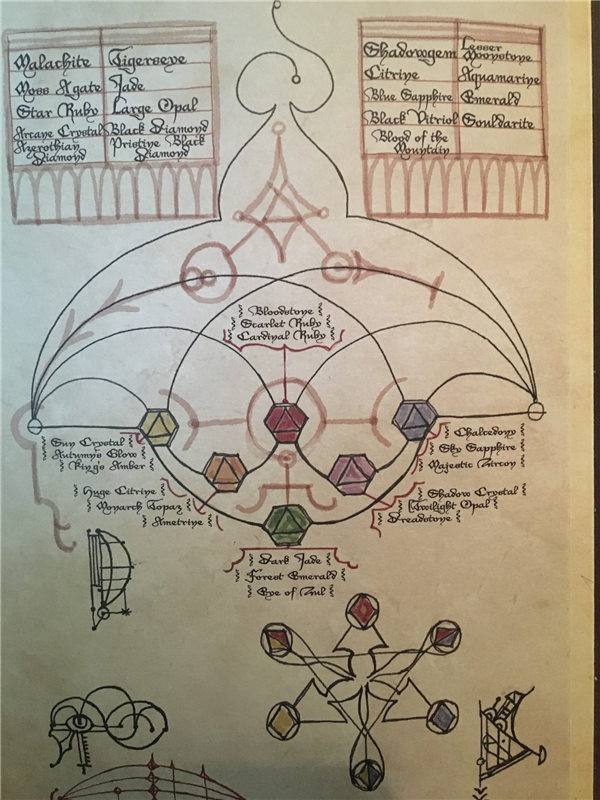 Malachite Tigerseye
Moss Agate Jade
Star Ruby Large Opal
Arcane Crystal Black Diamond
Azerothian Diamond Pristine Black Diamond
Shadowgem Lesser Moonstone
Citrine Aquamarine
Blue Sapphire Emerald
Black Vitriol Souldarite
Blood of the Mountain
Bloodstone
Scarlet Ruby
Cardinal Ruby
Sun Crystal
Autumn's Glow
King's Amber
Chalcedony
Sky Sapphire
Majestic Zircon
Huge Citrine
Monarch Topaz
Ametrine
Shadow Crystal
Twilight Opal
Dreadstone
Dark Jade
Forest Emerald
Eye of Zul